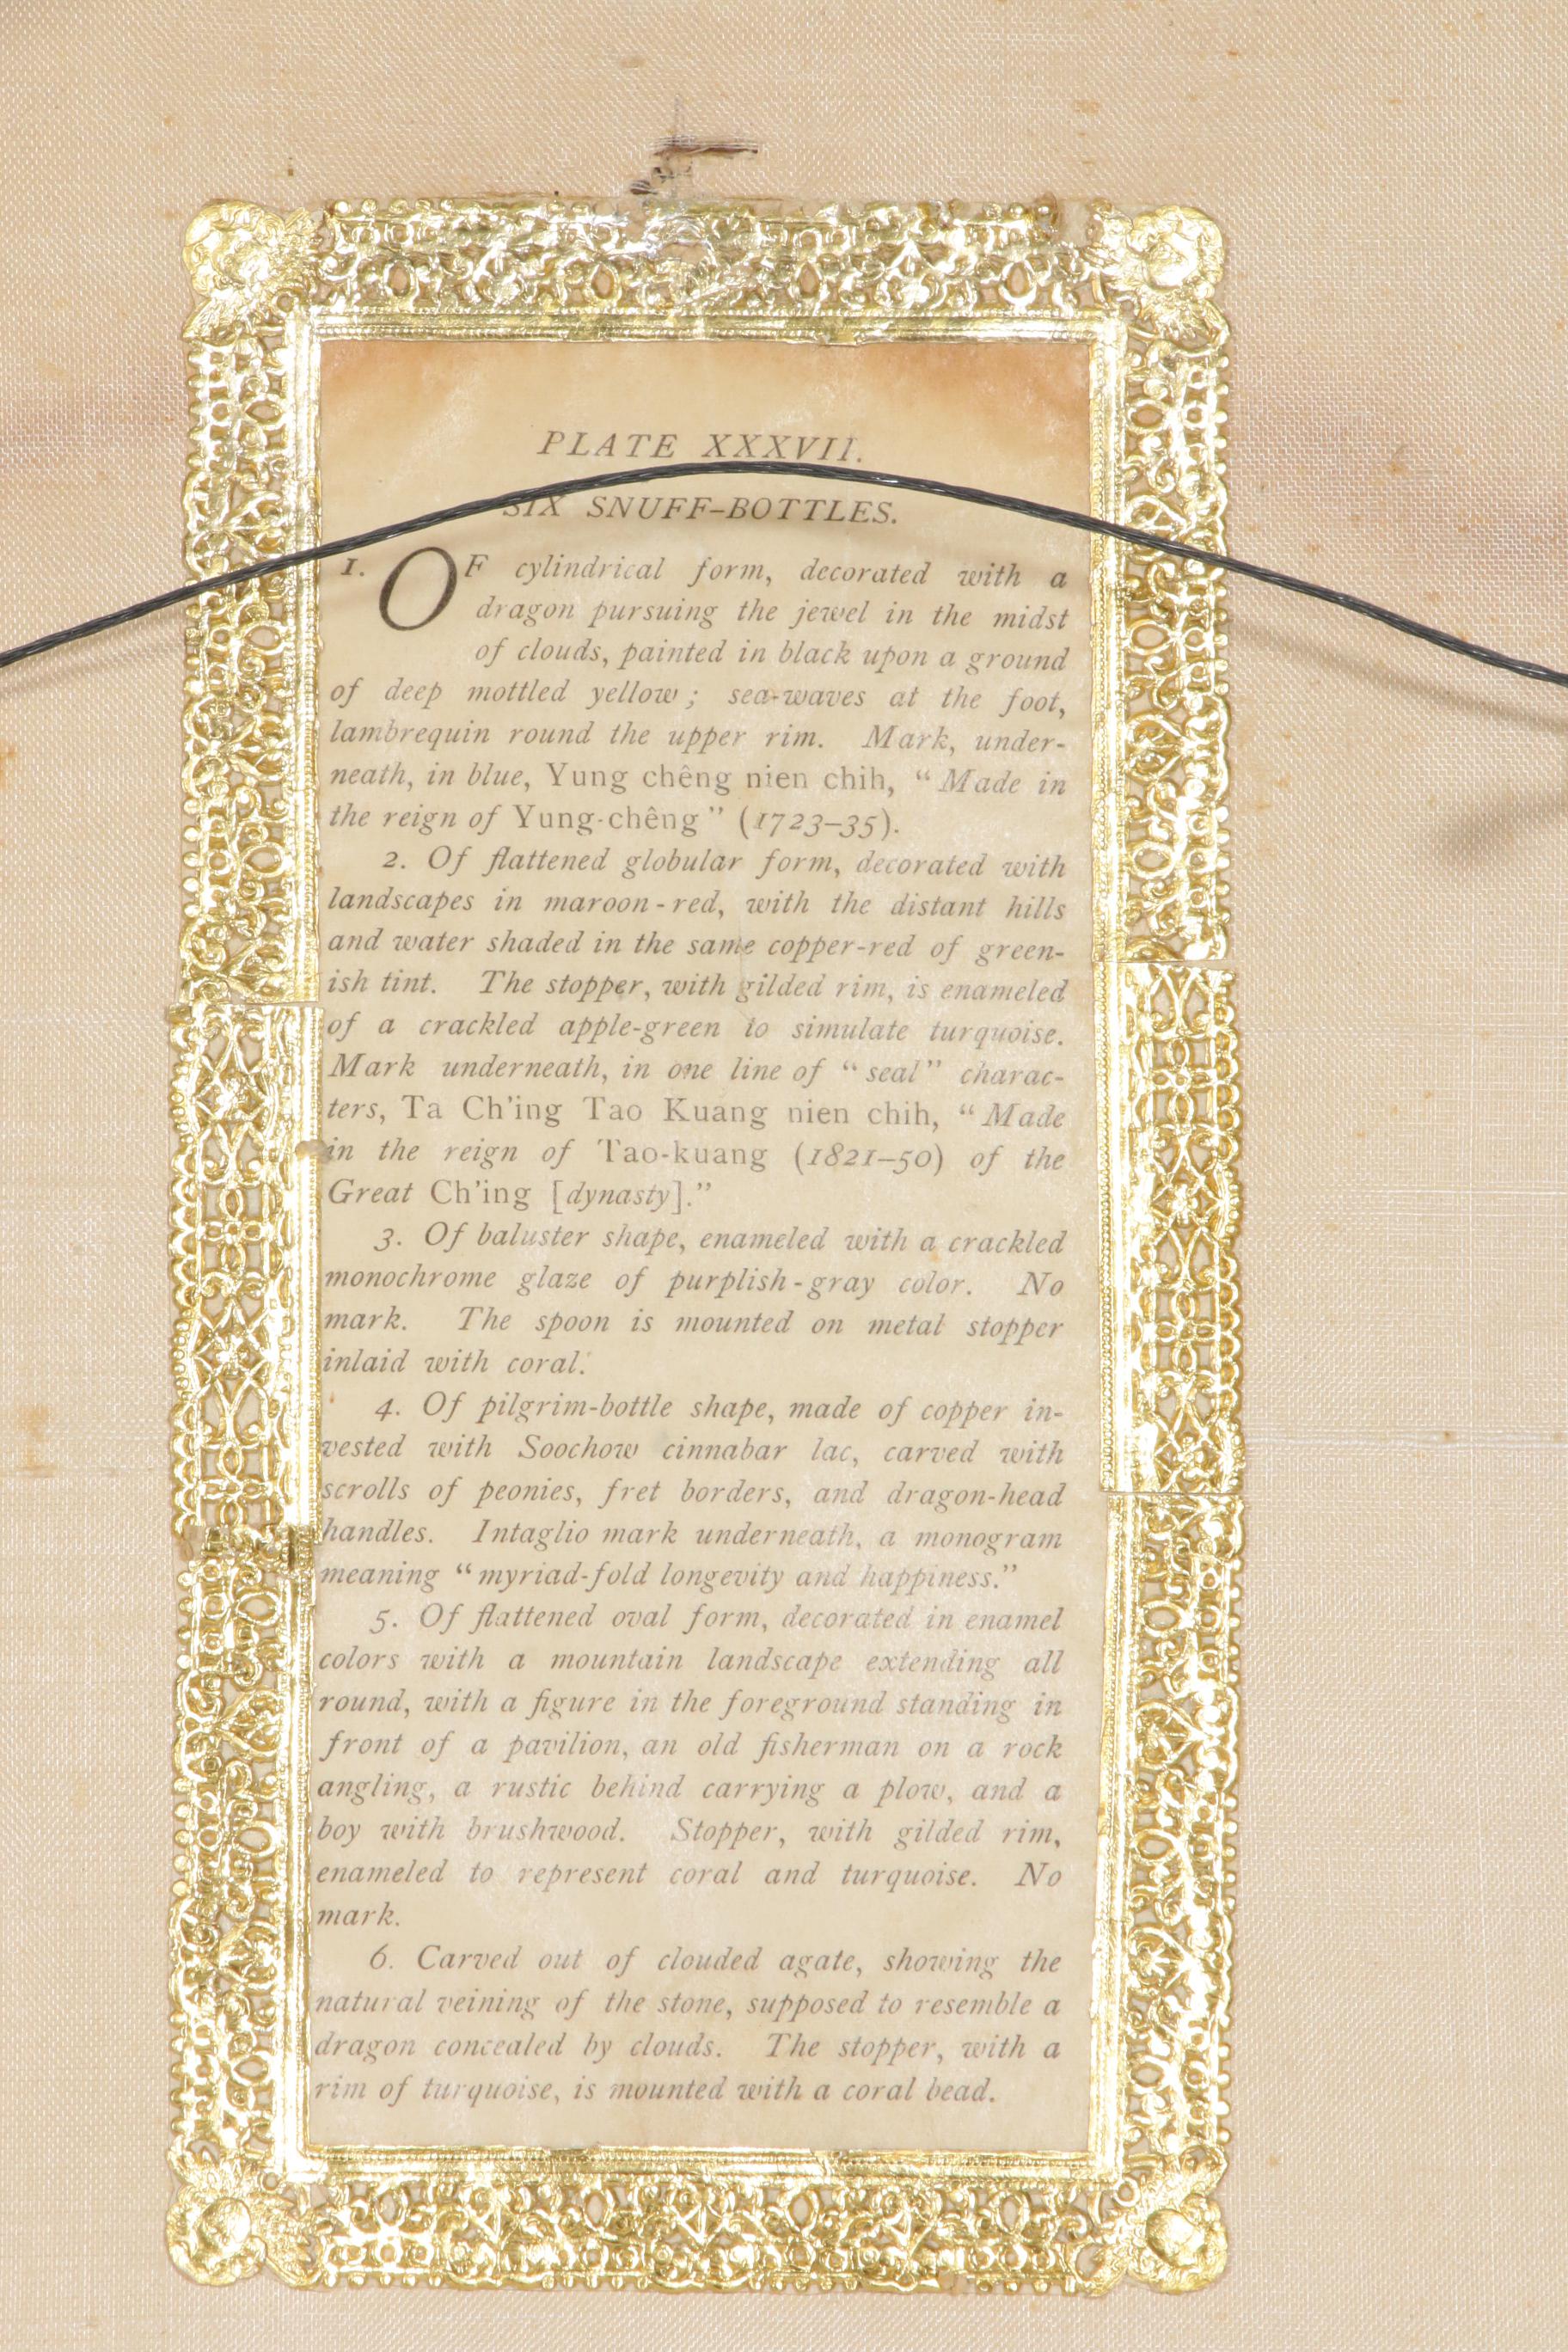 PLATE XXXVII.
SIX SNUFF-BOTTLES.
1. OF cylindrical form, decorated with a
dragon pursuing the jewel in the midst
of clouds, painted in black upon a ground
of deep mottled yellow; sea-waves at the foot,
lambrequin round the upper rim. Mark, under-
neath, in blue, Yung chêng nien chih, "Made in
the reign of Yung-chêng" (1723–35).
2. Of flattened globular form, decorated with
landscapes in maroon-red, with the distant hills
and water shaded in the same copper-red of green-
ish tint. The stopper, with gilded rim, is enameled
of a crackled apple-green to simulate turquoise.
Mark underneath, in one line of "seal" charac-
ters, Ta Ch'ing Tao Kuang nien chih, "Made
in the reign of Tao-kuang (1821–50) of the
Great Ch'ing [dynasty]."
3. Of baluster shape, enameled with a crackled
monochrome glaze of purplish-gray color. No
mark. The spoon is mounted on metal stopper
inlaid with coral.
4. Of pilgrim-bottle shape, made of copper in-
vested with Soochow cinnabar lac, carved with
scrolls of peonies, fret borders, and dragon-head
handles. Intaglio mark underneath, a monogram
meaning "myriad-fold longevity and happiness."
5. Of flattened oval form, decorated in enamel
colors with a mountain landscape extending all
round, with a figure in the foreground standing in
front of a pavilion, an old fisherman on a rock
angling, a rustic behind carrying a plow, and a
boy with brushwood. Stopper, with gilded rim,
enameled to represent coral and turquoise. No
mark.
6. Carved out of clouded agate, showing the
natural veining of the stone, supposed to resemble a
dragon concealed by clouds. The stopper, with a
rim of turquoise, is mounted with a coral bead.